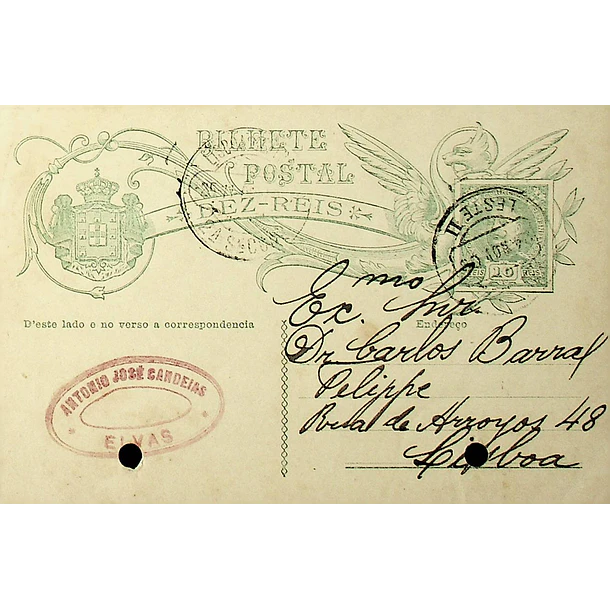 BILHETE
POSTAL
DEZ-REIS
LESTE II
10
REIS
D'este lado e no verso a correspondencia
Endereço
Ex.mo Snr.
Dr Carlos Barral
Felippe
Rua de Arroyos 48
Lisboa
ANTONIO JOSÉ CANDEIAS
ELVAS